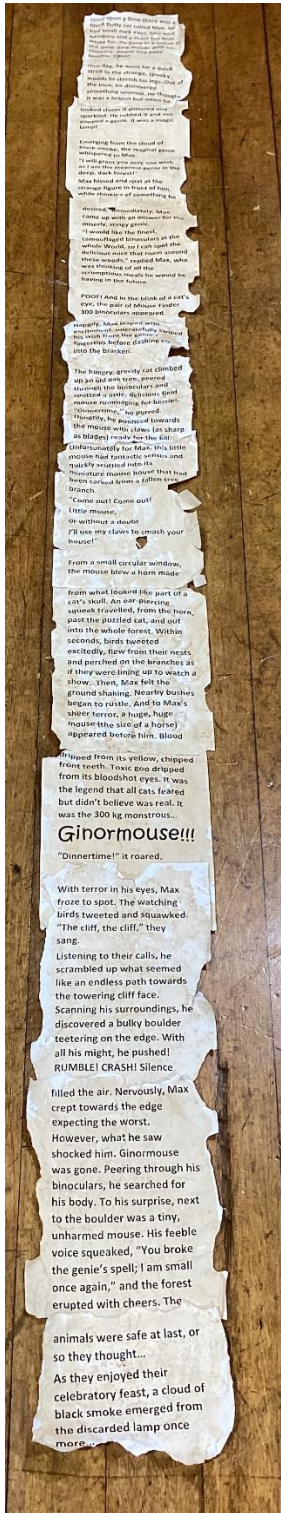 upon a time there was a
black fluffy cat called Max. He
had small dark eyes, two
whiskers and a
white fur. He lived at a
One day, he went for a quick
stroll in the strange, spooky
woods to stretch his legs. Out of
the blue, he discovered
something unusual. He thought
it was a teapot but when he
looked closer it glittered and
sparkled. He rubbed it and out
popped a genie. It was a magic
lamp!
Emerging from the cloud of
black smoke, the magical genie
whispered to Max,
"I will grant you only one wish
as I am the meanest genie in the
deep, dark forest!"
Max hissed and spat at the
strange figure in front of him,
while thinking of something he
desired. Immediately, Max
came up with an answer for the
miserly, stingy genie.
"I would like the finest,
camouflaged binoculars in the
whole World, so I can spot the
delicious mice that roam around
these woods," replied Max, who
was thinking of all the
scrumptious meals he would be
having in the future.
POOF! And in the blink of a cat's
eye, the pair of Mouse Finder
300 binoculars appeared.
Happily, Max leaped with
excitement, ungratefully swiped
his wish from the genie's
fingertips before dashing off
into the bracken.
The hungry, greedy cat climbed
up an old oak tree, peered
through the binoculars and
spotted a little, delicious field
mouse rummaging for berries.
"Dinnertime," he purred.
Hungrily, he pounced towards
the mouse with claws (as sharp
as blades) ready for the kill.
Unfortunately for Max, this little
mouse had fantastic senses and
quickly scuttled into its
miniature mouse house that had
been carved from a fallen tree
branch.
"Come out! Come out!
Little mouse,
or without a doubt
I'll use my claws to smash your
house!"
From a small circular window,
the mouse blew a horn made
from what looked like part of a
cat's skull. An ear-piercing
squeak travelled, from the horn,
past the puzzled cat, and out
into the whole forest. Within
seconds, birds tweeted
excitedly, flew from their nests
and perched on the branches as
if they were lining up to watch a
show. Then, Max felt the
ground shaking. Nearby bushes
began to rustle. And to Max's
sheer terror, a huge, huge
mouse (the size of a horse)
appeared before him. Blood
dripped from its yellow, chipped
front teeth. Toxic goo dripped
from its bloodshot eyes. It was
the legend that all cats feared
but didn't believe was real. It
was the 300 kg monstrous...
Ginormouse!!!
"Dinnertime!" it roared.
With terror in his eyes, Max
froze to the spot. The watching
birds tweeted and squawked.
"The cliff, the cliff," they
sang.
Listening to their calls, he
scrambled up what seemed
like an endless path towards
the towering cliff face.
Scanning his surroundings, he
discovered a bulky boulder
teetering on the edge. With
all his might, he pushed!
RUMBLE! CRASH! Silence
filled the air. Nervously, Max
crept towards the edge
expecting the worst.
However, what he saw
shocked him. Ginormouse
was gone. Peering through his
binoculars, he searched for
his body. To his surprise, next
to the boulder was a tiny,
unharmed mouse. His feeble
voice squeaked, "You broke
the genie's spell; I am small
once again," and the forest
erupted with cheers. The
animals were safe at last, or
so they thought...
As they enjoyed their
celebratory feast, a cloud of
black smoke emerged from
the discarded lamp once
more...